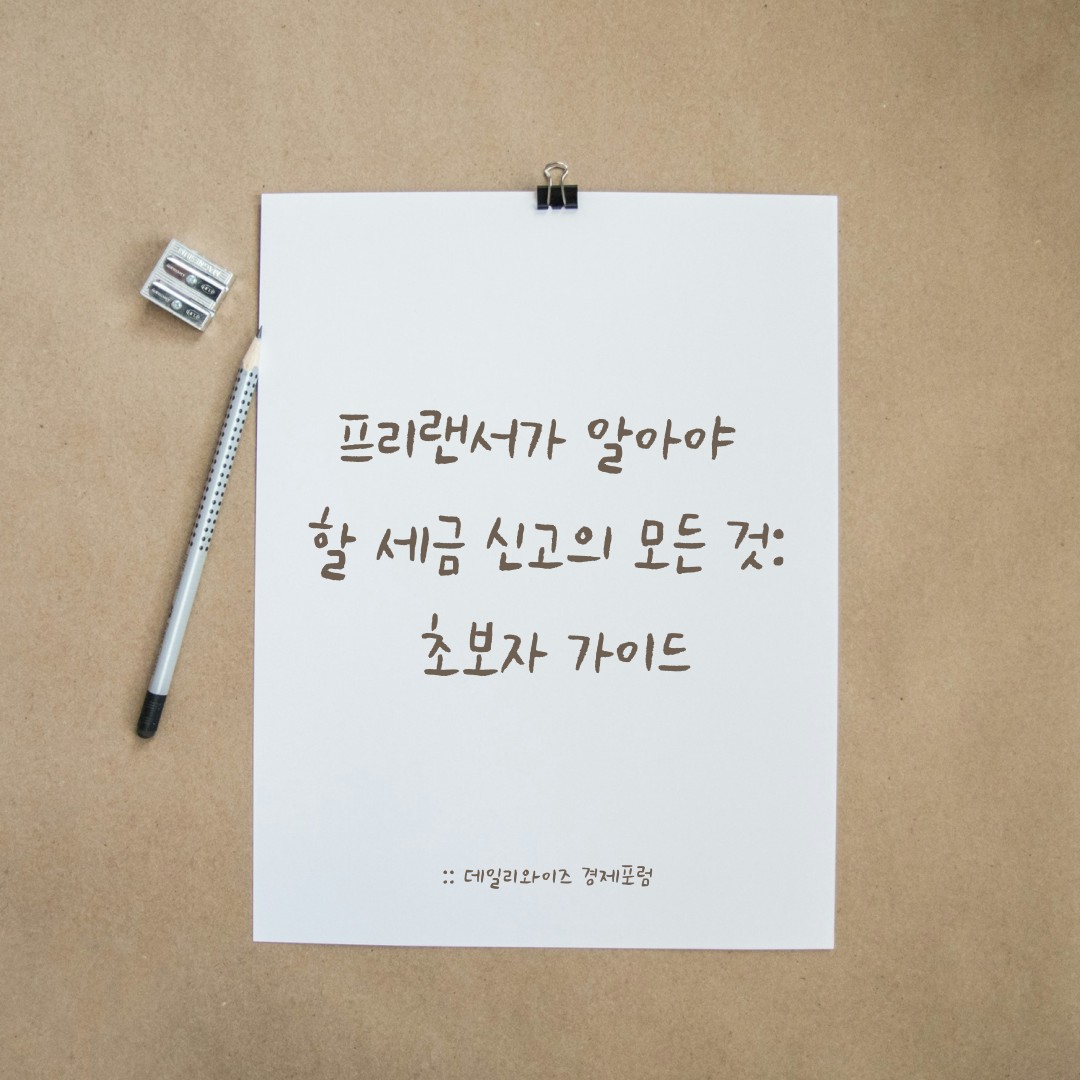 프리랜서가 알아야
할 세금 신고의 모든 것:
초보자 가이드
:: 데일리와이즈 경제포럼